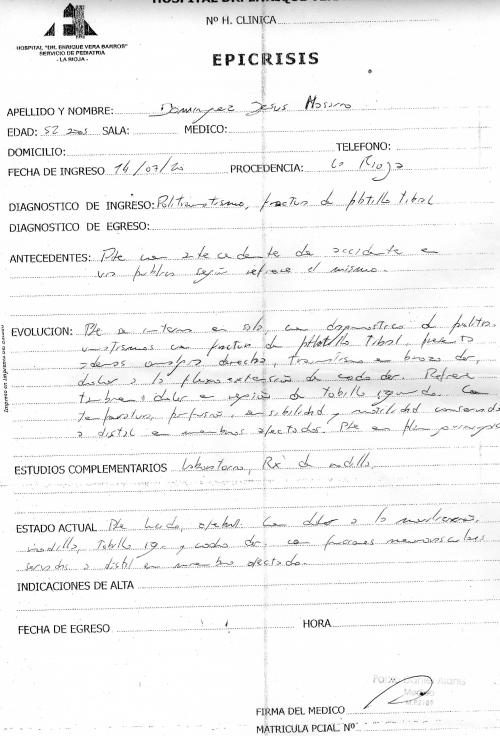 HOSPITAL DR. ENRIQUE VERA
Nº H. CLINICA
HOSPITAL "DR. ENRIQUE VERA BARROS"
SERVICIO DE PEDIATRIA
- LA RIOJA -
EPICRISIS
APELLIDO Y NOMBRE: Dominguez Jesus
EDAD: 52 años SALA: MEDICO:
DOMICILIO: TELEFONO:
FECHA DE INGRESO 14/07/20 PROCEDENCIA: La Rioja
DIAGNOSTICO DE INGRESO: Politraumatismo, fractura de platillo tibial
DIAGNOSTICO DE EGRESO:
ANTECEDENTES: Pte con antecedente de accidente en
via publica según refiere el mismo.
EVOLUCION: Pte se interna en sala, con diagnostico de politra
umatismos con fractura de platillo tibial, presenta
ademas derecho, traumatismo en brazo der,
dolor a la flexoextensión de codo der. Refiere
tambien dolor en región de tobillo izquierdo. Con
temperatura, perfusión, sensibilidad y movilidad conservada
a distal en miembros afectados. Pte en
ESTUDIOS COMPLEMENTARIOS Laboratorio, Rx de rodilla
ESTADO ACTUAL Pte lucido, afebril. Con dolor a la movilización
rodilla, tobillo izq. y codo der, con funciones neurovasculares
a distal en miembro afectado.
INDICACIONES DE ALTA
FECHA DE EGRESO HORA
Medico
FIRMA DEL MEDICO
MATRICULA PCIAL. Nº